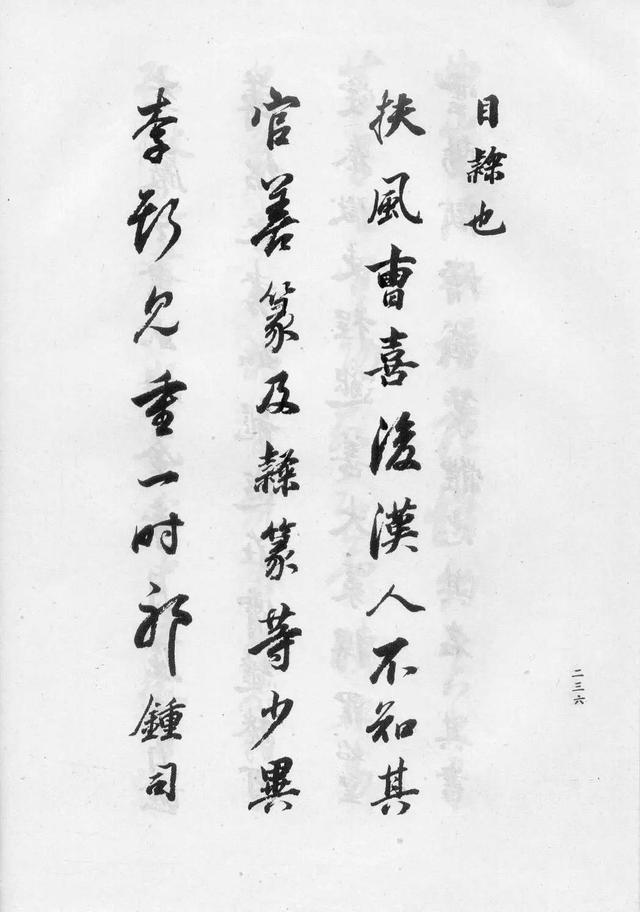 目隸也
扶風曹喜後漢人不知其
官善篆及隸篆等少異
李斯見重一时邪鍾司
二三六